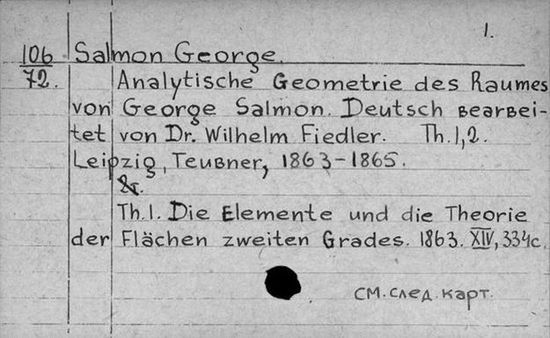 1.
106 Salmon George.
72. Analytische Geometrie des Raumes
von George Salmon. Deutsch bearbei-
tet von Dr. Wilhelm Fiedler. Th. 1, 2.
Leipzig, Teubner, 1863-1865.
Th. 1. Die Elemente und die Theorie
der Flächen zweiten Grades. 1863. XIV, 334c.
см. след. карт.